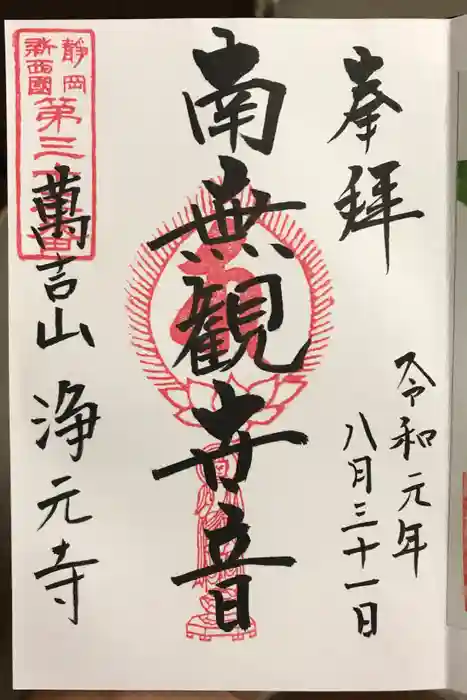 奉拝
令和元年
八月三十一日
南無観世音
萬吉山 浄元寺
静岡
新西国
第三